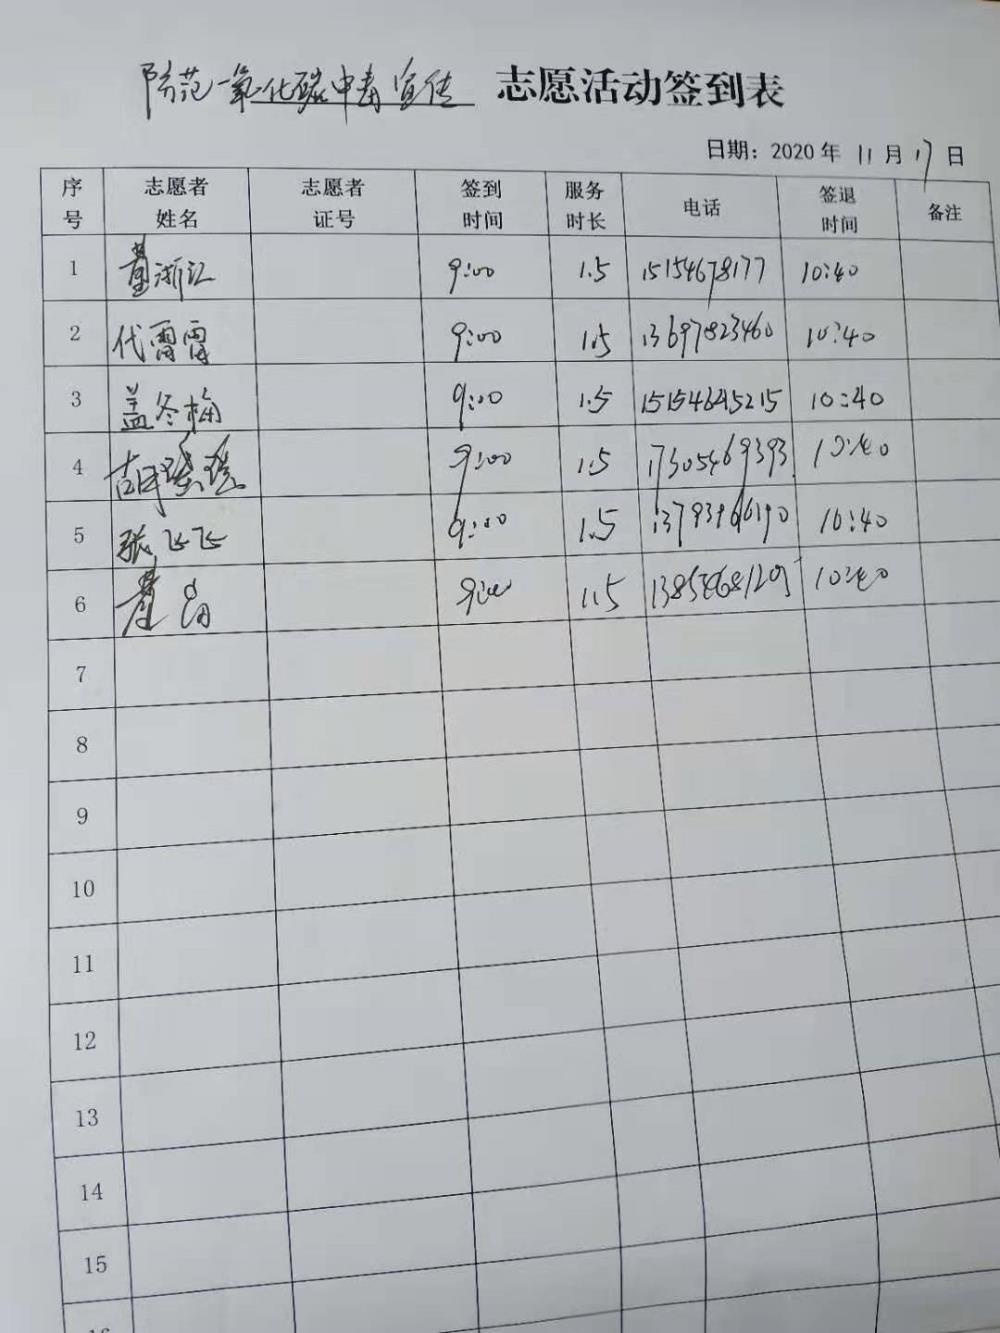 防范一氧化碳中毒宣传 志愿活动签到表
日期：2020 年 11 月 17 日
序号 志愿者姓名 志愿者证号 签到时间 服务时长 电话 签退时间 备注
1 董浙江 9:00 1.5 15154678177 10:40
2 代雷雷 9:00 1.5 13697823460 10:40
3 盖冬梅 9:00 1.5 15154645215 10:40
4 胡瑶瑶 9:00 1.5 17305469393 10:40
5 张飞飞 9:00 1.5 13793966190 10:40
6 9:00 1.5 10:40
7
8
9
10
11
12
13
14
15
16